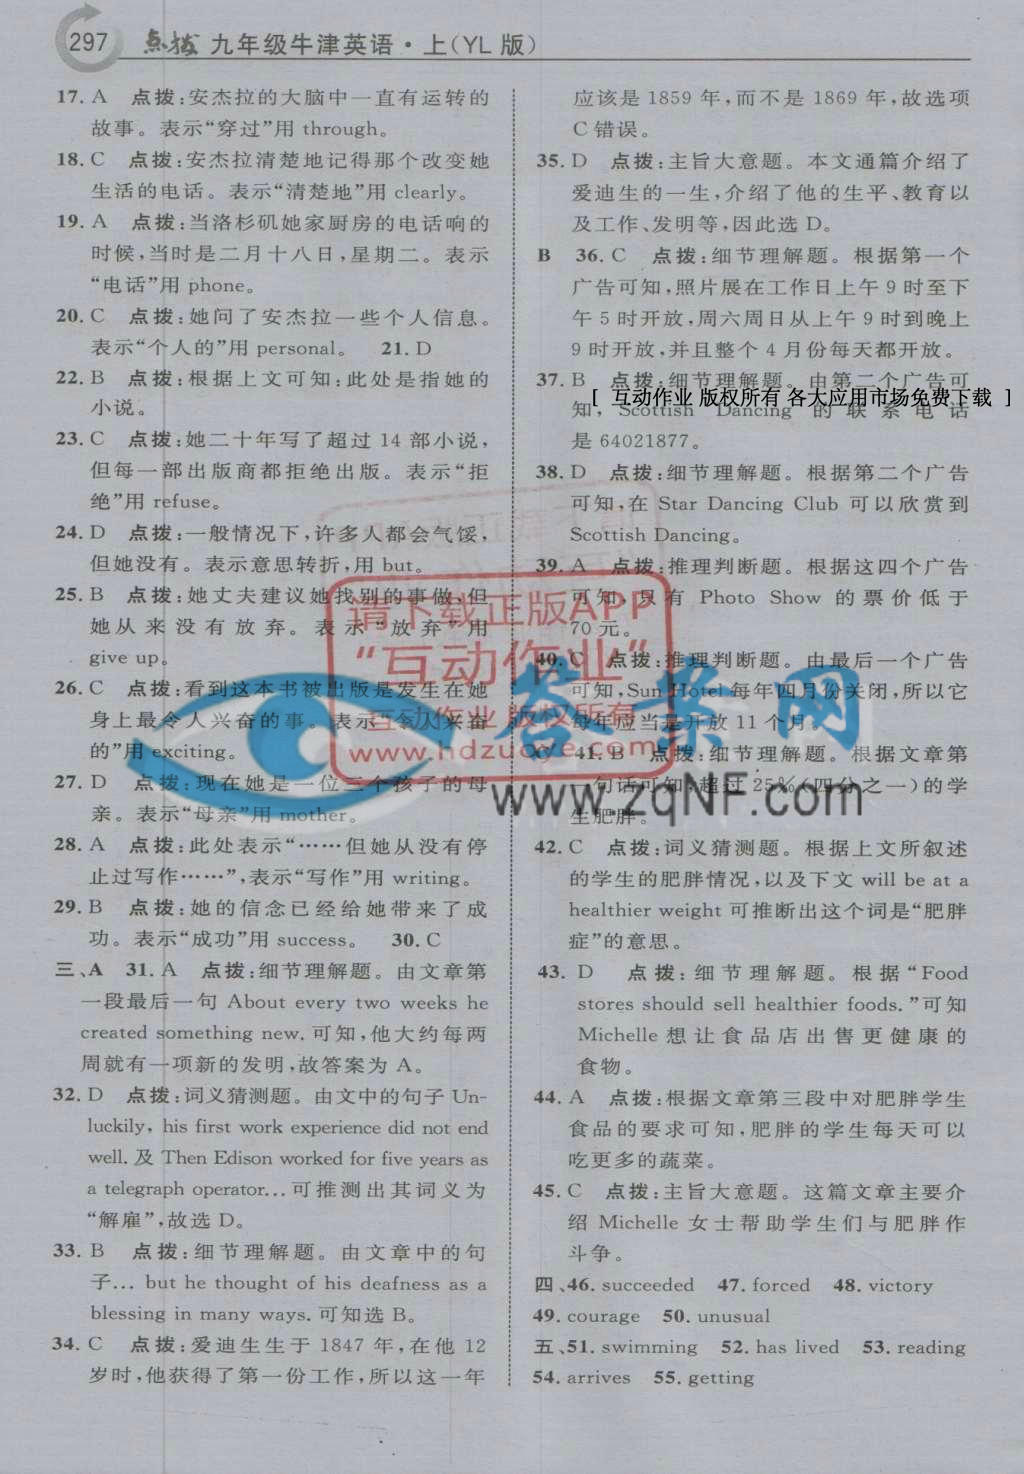 297 点拨 九年级牛津英语·上(YL版)
17. A 点拨:安杰拉的大脑中一直有运转的
故事。表示“穿过”用 through。
18. C 点拨:安杰拉清楚地记得那个改变她
生活的电话。表示“清楚地”用 clearly。
19. A 点拨:当洛杉矶她家厨房的电话响的
时候,当时是二月十八日,星期二。表示
“电话”用 phone。
20. C 点拨:她问了安杰拉一些个人信息。
表示“个人的”用 personal。 21. D
22. B 点拨:根据上文可知:此处是指她的
小说。
23. C 点拨:她二十年写了超过 14 部小说,
但每一部出版商都拒绝出版。表示“拒
绝”用 refuse。
24. D 点拨:一般情况下,许多人都会气馁,
但她没有。表示意思转折,用 but。
25. B 点拨:她丈夫建议她找别的事做,但
她从来没有放弃。表示“放弃”用
give up。
26. C 点拨:看到这本书被出版是发生在她
身上最令人兴奋的事。表示“令人兴奋
的”用 exciting。
27. D 点拨:现在她是一位三个孩子的母
亲。表示“母亲”用 mother。
28. A 点拨:此处表示“……但她从没有停
止过写作……”,表示“写作”用 writing。
29. B 点拨:她的信念已经给她带来了成
功。表示“成功”用 success。 30. C
三、A 31. A 点拨:细节理解题。由文章第
一段最后一句 About every two weeks he
created something new. 可知,他大约每两
周就有一项新的发明,故答案为 A。
32. D 点拨:词义猜测题。由文中的句子 Un-
luckily, his first work experience did not end
well. 及 Then Edison worked for five years as
a telegraph operator... 可推测出其词义为
“解雇”,故选 D。
33. B 点拨:细节理解题。由文章中的句
子... but he thought of his deafness as a
blessing in many ways. 可知选 B。
34. C 点拨:爱迪生生于 1847 年,在他 12
岁时,他获得了第一份工作,所以这一年
应该是 1859 年,而不是 1869 年,故选项
C 错误。
35. D 点拨:主旨大意题。本文通篇介绍了
爱迪生的一生,介绍了他的生平、教育以
及工作、发明等,因此选 D。
B 36. C 点拨:细节理解题。根据第一个
广告可知,照片展在工作日上午 9 时至下
午 5 时开放,周六周日从上午 9 时到晚上
9 时开放,并且整个 4 月份每天都开放。
37. B 点拨:细节理解题。由第二个广告可
[ 互动作业 版权所有 各大应用市场免费下载 ]
知, Scottish Dancing 的联系电话
是 64021877。
38. D 点拨:细节理解题。根据第二个广告
可知,在 Star Dancing Club 可以欣赏到
Scottish Dancing。
39. A 点拨:推理判断题。根据这四个广告
可知,只有 Photo Show 的票价低于
70 元。
40. C 点拨:推理判断题。由最后一个广告
可知,Sun Hotel 每年四月份关闭,所以它
每年应当是开放 11 个月。
C 41. B 点拨:细节理解题。根据文章第
一句话可知,超过 25%(四分之一)的学
生肥胖。
42. C 点拨:词义猜测题。根据上文所叙述
的学生的肥胖情况,以及下文 will be at a
healthier weight 可推断出这个词是“肥胖
症”的意思。
43. D 点拨:细节理解题。根据“Food
stores should sell healthier foods.”可知
Michelle 想让食品店出售更健康的
食物。
44. A 点拨:根据文章第三段中对肥胖学生
食品的要求可知,肥胖的学生每天可以
吃更多的蔬菜。
45. C 点拨:主旨大意题。这篇文章主要介
绍 Michelle 女士帮助学生们与肥胖作
斗争。
四、46. succeeded 47. forced 48. victory
49. courage 50. unusual
五、51. swimming 52. has lived 53. reading
54. arrives 55. getting
请下载正版APP
“互动作业”
互动作业 版权所有
www.hdzuoye.com
答案网
www.zqNF.com